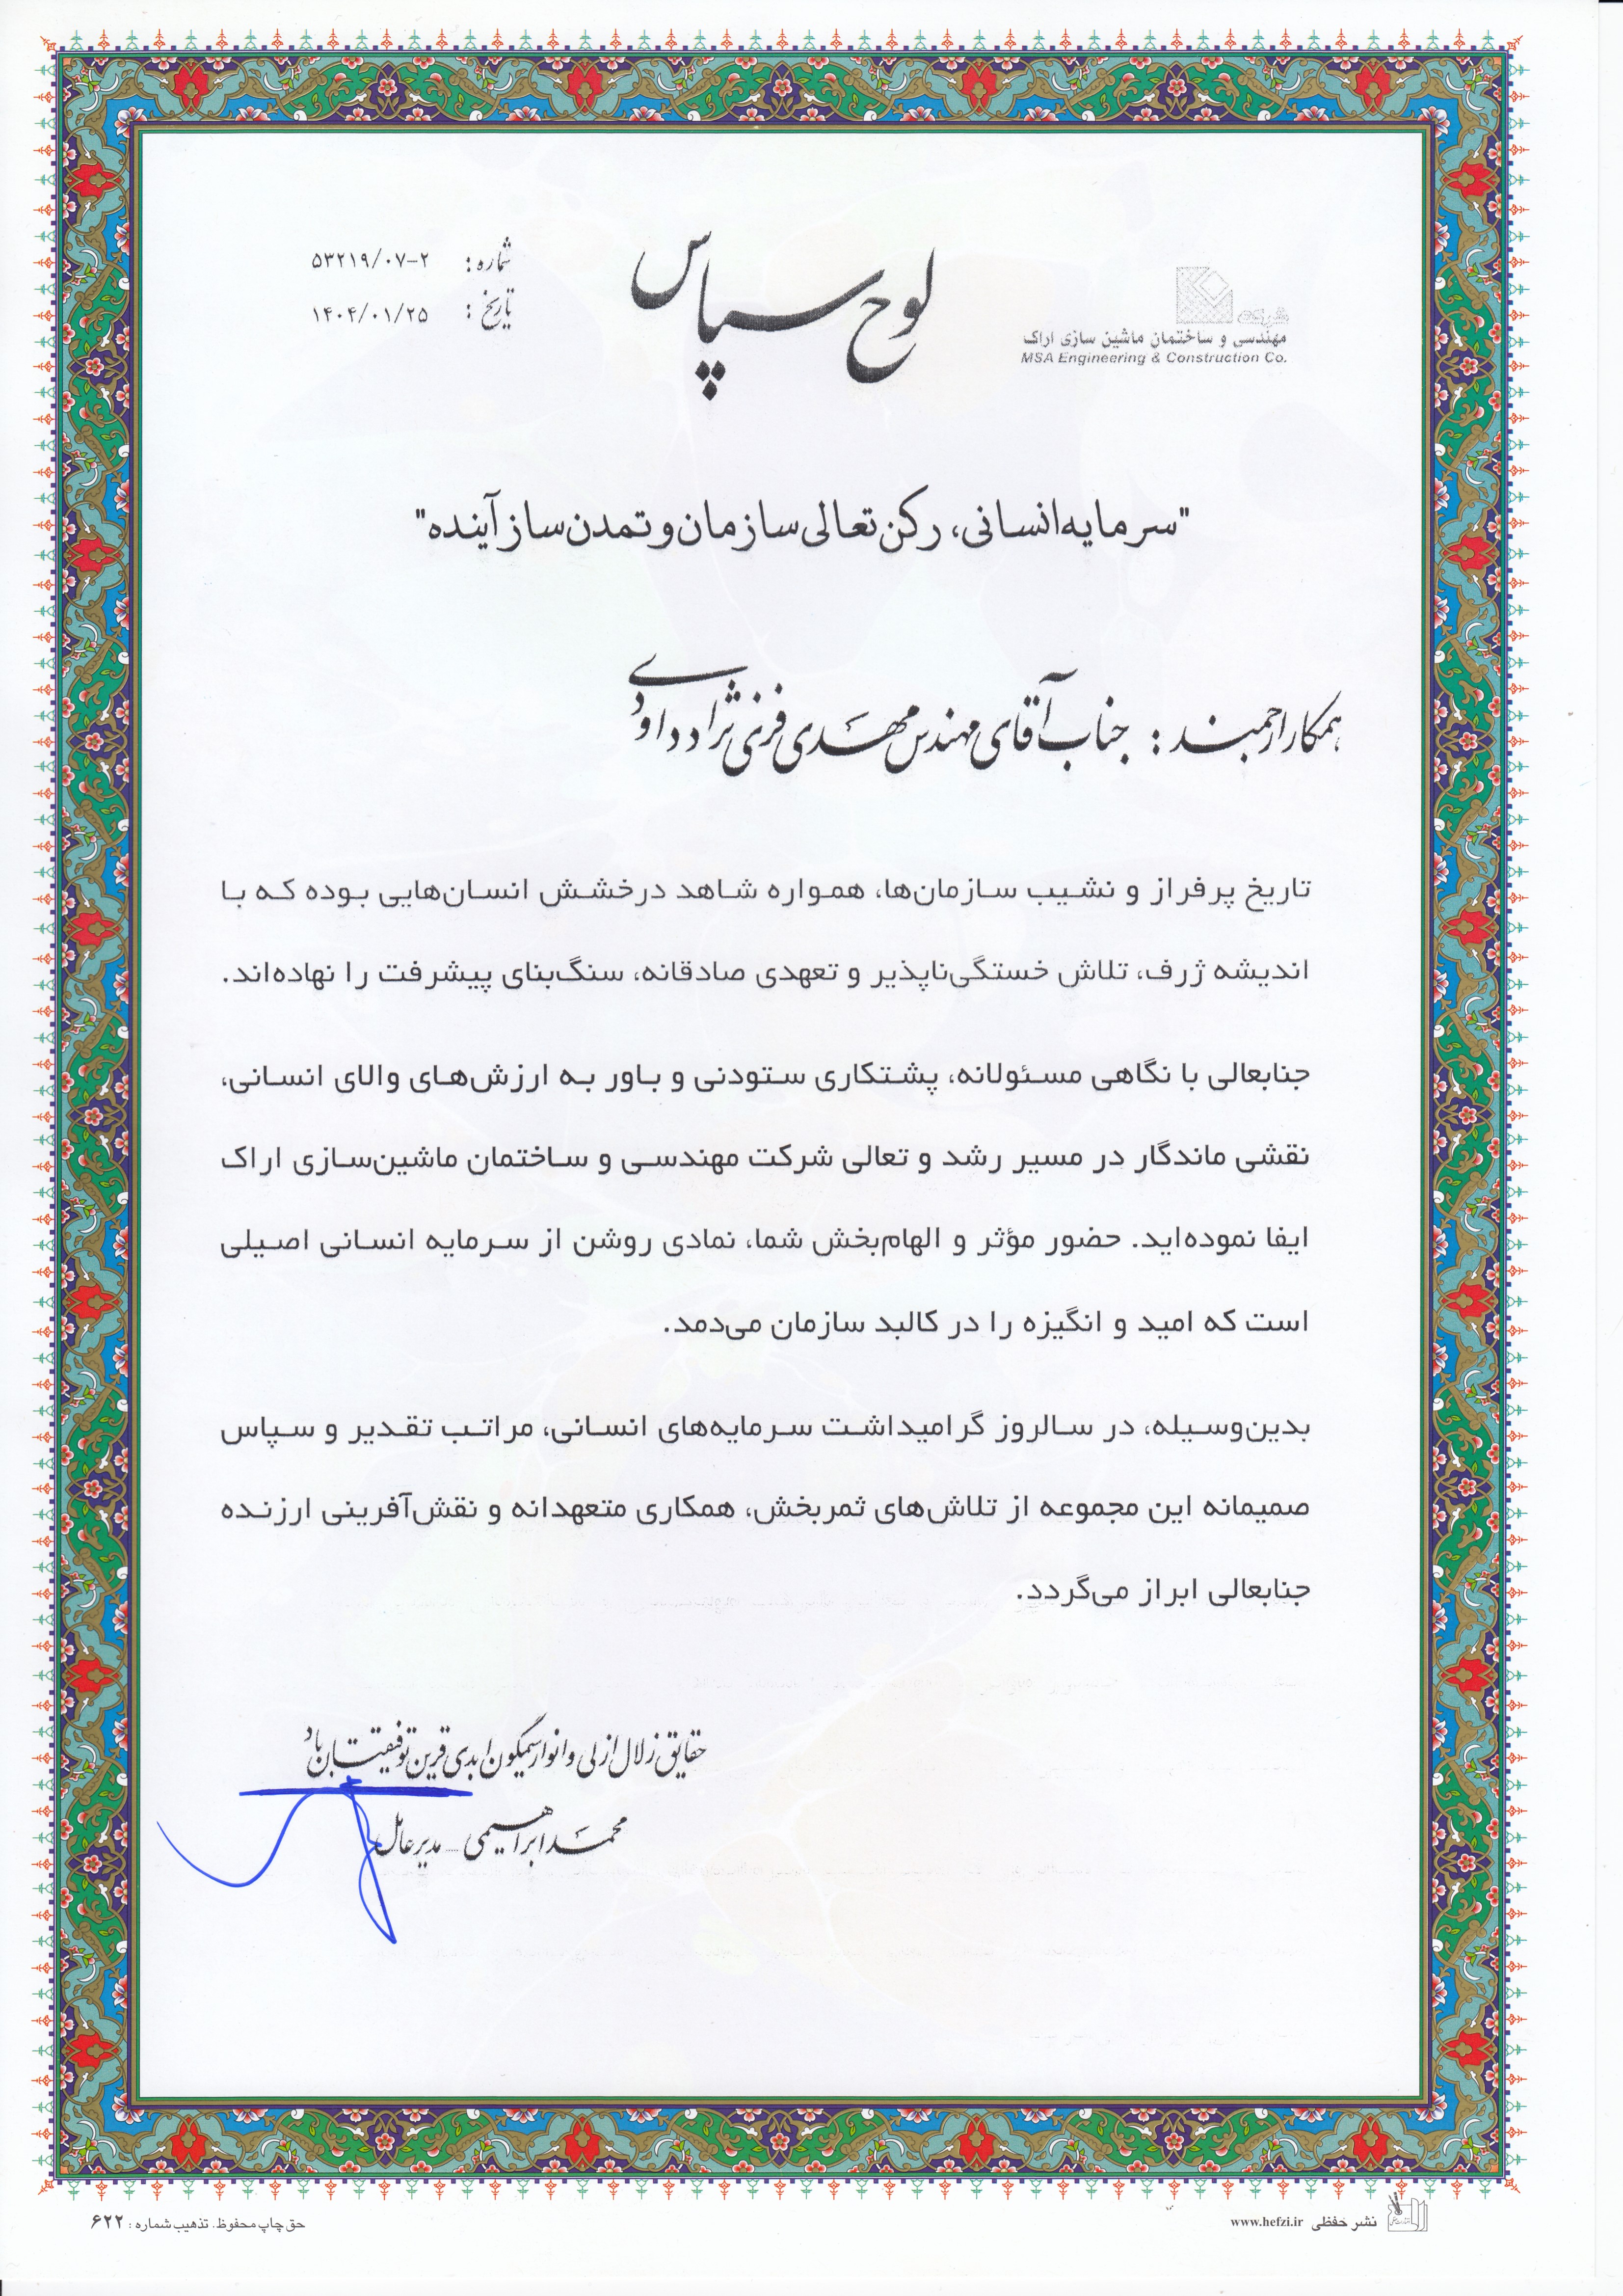 لوح سپاس
شماره: ۵۳۲۱۹/۰۷-۲
تاریخ: ۱۴۰۴/۰۱/۲۵
شرکت
مهندسی و ساختمان ماشین سازی اراک
MSA Engineering & Construction Co.
"سرمایه انسانی، رکن تعالی سازمان و تمدن ساز آینده"
همکار ارجمند : جناب آقای مهندس مهدی فرنی نژاد داودی
تاریخ پرفراز و نشیب سازمان‌ها، همواره شاهد درخشش انسان‌هایی بوده که با
اندیشه ژرف، تلاش خستگی‌ناپذیر و تعهدی صادقانه، سنگ‌بنای پیشرفت را نهاده‌اند.
جنابعالی با نگاهی مسئولانه، پشتکاری ستودنی و باور به ارزش‌های والای انسانی،
نقشی ماندگار در مسیر رشد و تعالی شرکت مهندسی و ساختمان ماشین‌سازی اراک
ایفا نموده‌اید. حضور مؤثر و الهام‌بخش شما، نمادی روشن از سرمایه انسانی اصیلی
است که امید و انگیزه را در کالبد سازمان می‌دمد.
بدین‌وسیله، در سالروز گرامیداشت سرمایه‌های انسانی، مراتب تقدیر و سپاس
صمیمانه این مجموعه از تلاش‌های ثمربخش، همکاری متعهدانه و نقش‌آفرینی ارزنده
جنابعالی ابراز می‌گردد.
حقایق زلال ازلی و انوار سیمگون ابدی قرین توفیقتان باد
محمد ابراهیمی - مدیرعامل
نشر حفظی www.hefzi.ir
حق چاپ محفوظ. تذهیب شماره : ۶۲۲